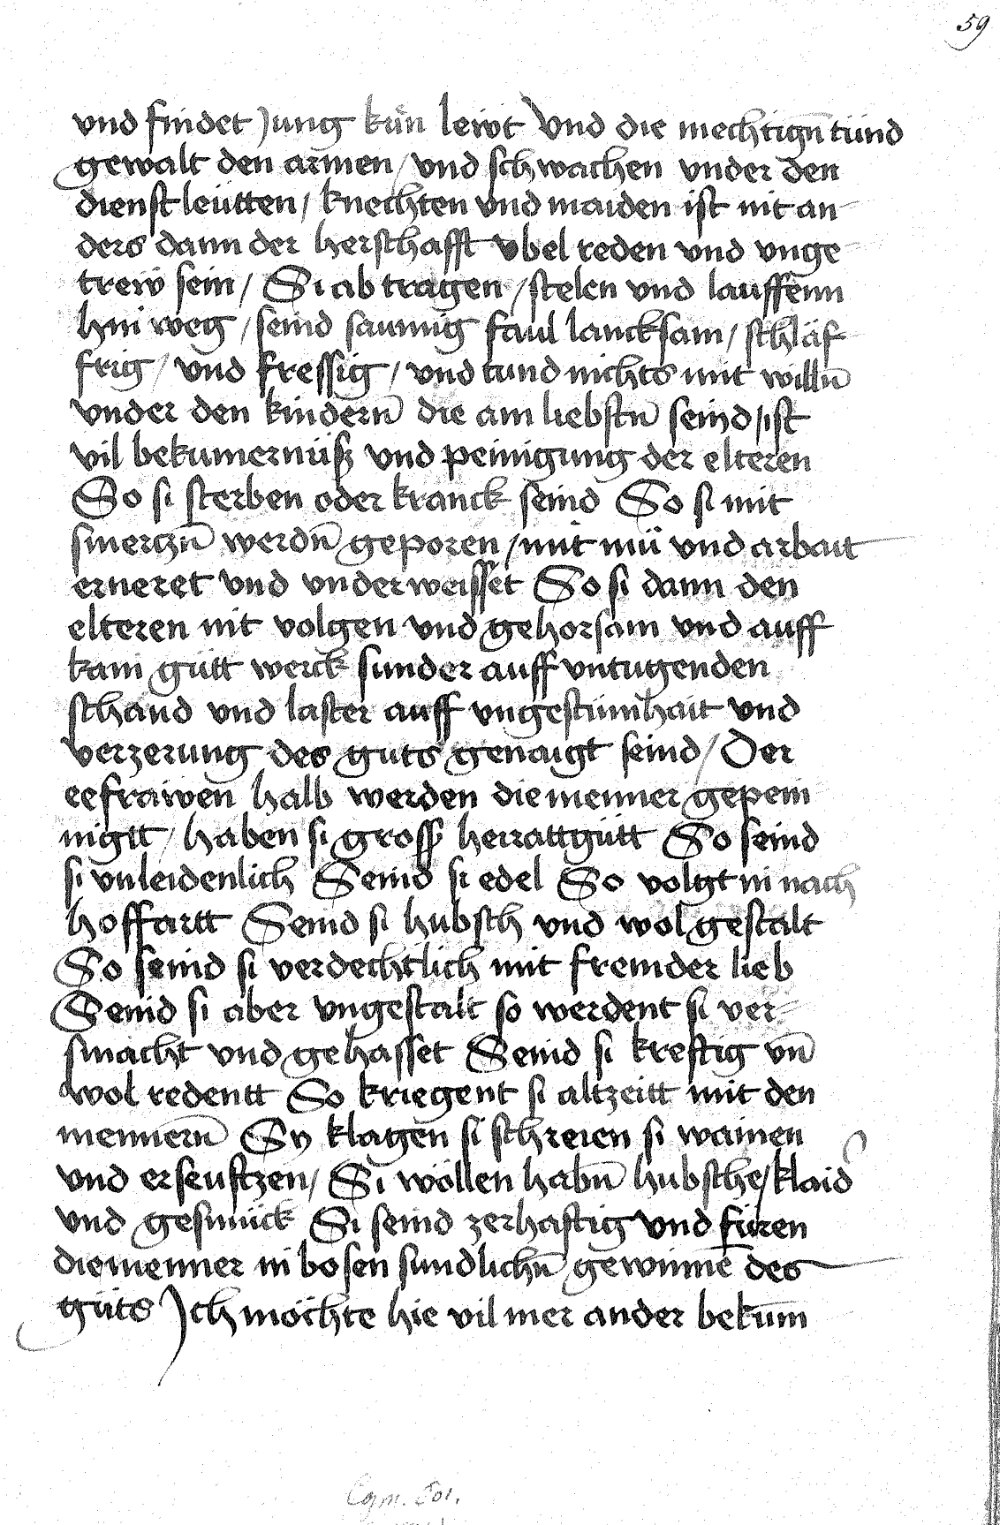 59
vnd findet Jung kün lewt Vnd die mechtign̄ tünd
gewalt den armen / vnd schwachen vnder den
dienstleütten / knechten vnd maiden ist nit an-
ders dann der herschafft vbel reden vnd vnge-
trew sein / Si abtragen / stelen vnd lauffenn
hin weg / seind saumig faul lancksam / schläf-
frig / vnd fressig / vnd tund nichts mit willn̄
vnder den kindern̄ die am liebstn̄ seind / ist
vil bekumernüß vnd peinigung der elteren
So si sterben oder kranck seind So si mit
smerczn̄ werdn̄ geporen / mit mü vnd arbait
erneret vnd vnderweisset So si dann den
elteren nit volgen vnd gehorsam vnd auff
kain gütt werck sunder auff vntugenden
schand vnd laster auff vngestümhait vnd
verzerung des guts genaigt seind / Der
eefrawen halb werden die menner gepein-
nigtt / haben si gross herrattgütt So seind
si vnleidenlich Seind si edel So volgt in nach
hoffartt Seind si hubsch vnd wol gestalt
So seind si verdechtlich mit fremder lieb
Seind si aber vngestalt so werdent si ver-
smächt vnd gehasset Seind si kreftig vn̄
wol redentt So kriegent si altzeitt mit den
mennern̄ Sy klagen si schreien si wainen
vnd erseuftzen / Si wöllen habn̄ hubsche / klaid
vnd gesmück Si seind zerhaftig vnd füren
die menner in bosen sundlichn̄ gewinne des
güts Ich möchte hie vil mer ander bekūm
Cgm. 501.